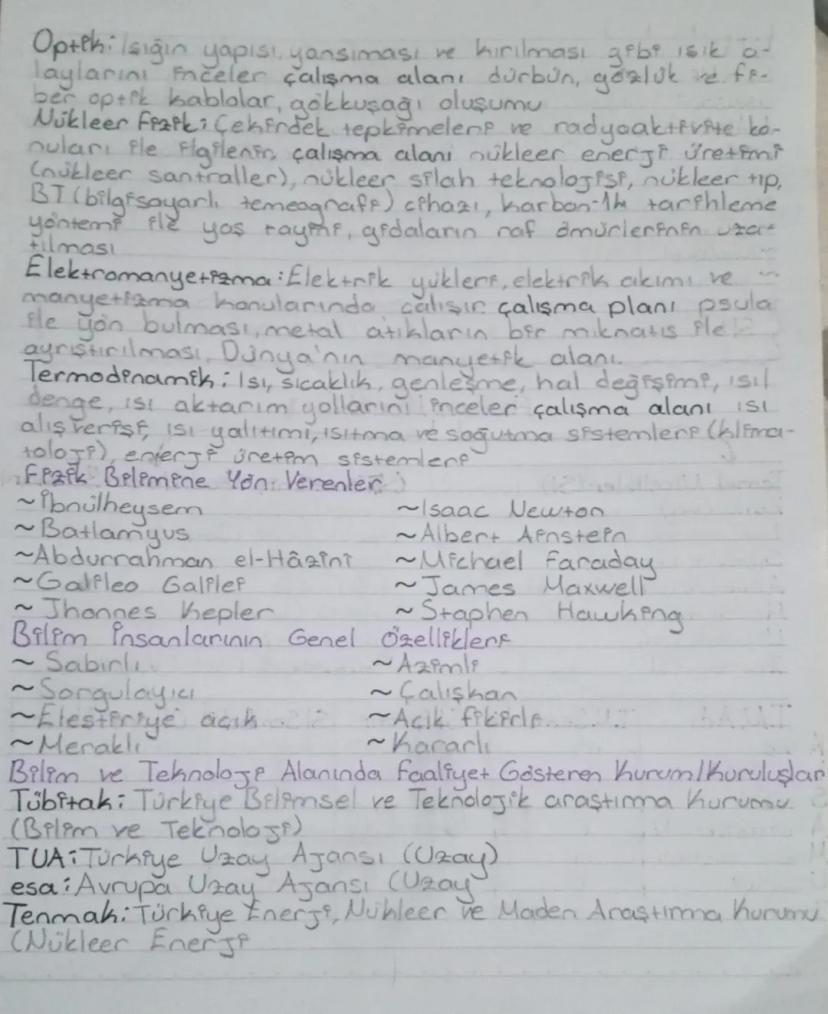 Optik: Isığın yapısı, yansıması ve kırılması gibi ısık o-
laylarını inceler çalışma alanı dürbün, gözlük ve fi-
ber optik kablolar, gökkuşağı oluşumu
Nükleer Fizik: Çekirdek tepkimeleri ve radyoaktivite ko-
nuları ile ilgilenir, çalışma alanı nükleer enerji üretimi
(nükleer santraller), nükleer silah teknolojisi, nükleer tıp,
BT (bilgisayarlı temeografi) cihazı, karbon-14 tarihleme
yöntemi ile yaş tayini, gıdaların raf ömürlerinin uza-
tılması
Elektromanyetizma: Elektrik yükleri, elektrik akımı ve
manyetizma konularında çalışır çalışma planı psula
ile yön bulması, metal atıkların bir mıknatıs ile
ayrıştırılması, Dünya'nın manyetik alanı.
Termodinamik: Isı, sıcaklık, genleşme, hal değişimi, ısıl
denge, ısı aktarım yollarını inceler çalışma alanı ısı
alışverişi, ısı yalıtımı, ısıtma ve soğutma sistemleri (klima-
toloji), enerji üretim sistemleri
Fizik Bilimine Yön Verenler
~İbnülheysem ~Isaac Newton
~Batlamyus ~Albert Ainstein
~Abdurrahman el-Hâzini ~Michael Faraday
~Galileo Galilei ~James Maxwell
~Jhonnes Kepler ~Staphen Hawking
Bilim İnsanlarının Genel Özellikleri
~Sabırlı ~Azimli
~Sorgulayıcı ~Çalışkan
~Eleştiriye açık ~Açık fikirli
~Meraklı ~Kararlı
Bilim ve Teknoloji Alanında Faaliyet Gösteren Kurum/Kuruluşlar
Tübitak: Türkiye Bilimsel ve Teknolojik araştırma Kurumu
(Bilim ve Teknoloji)
TUA: Türkiye Uzay Ajansı (Uzay)
esa: Avrupa Uzay Ajansı (Uzay
Tenmak: Türkiye Enerji, Nükleer ve Maden Araştırma Kurumu
(Nükleer Enerji